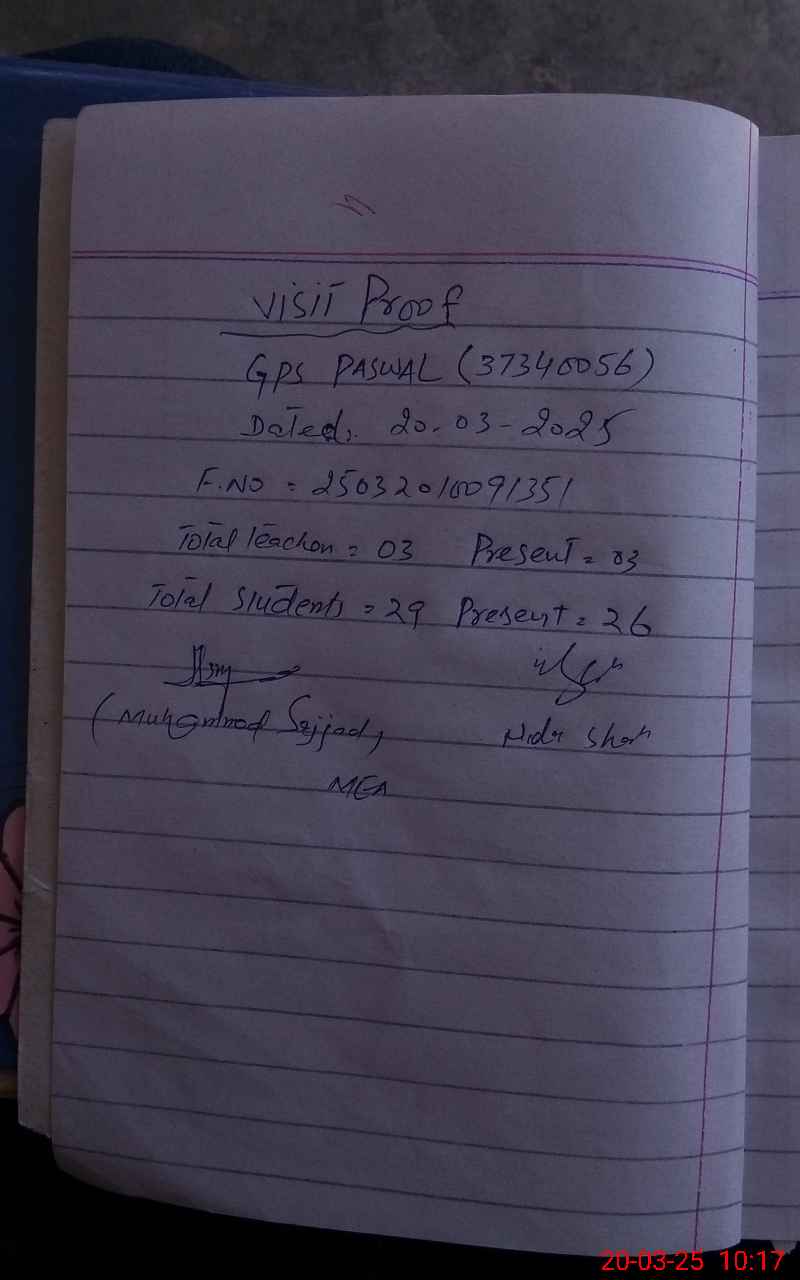 Visit Proof
GPS PASWAL (37340056)
Dated, 20-03-2025
F.NO = 25032010091351
Total Teachon = 03 Present = 03
Total Students = 29 Present = 26
(Muhammad Sajjad,
Shah
MEA
20-03-25 10:17